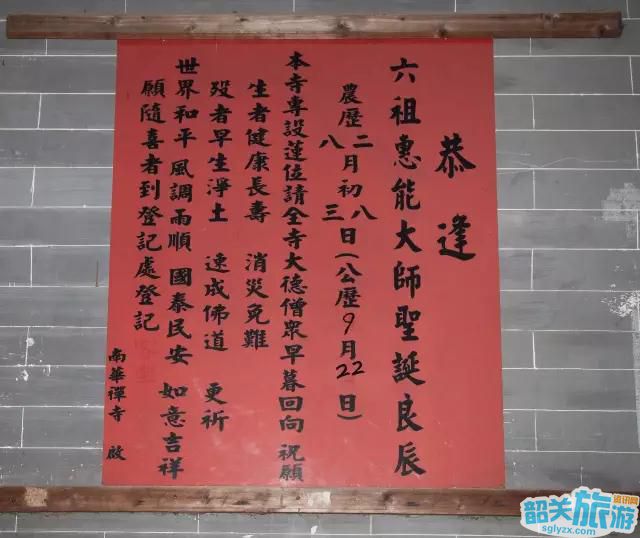 恭逢
六祖惠能大師聖誕良辰
農歷二八月初八三日(公歷9月22日)
本寺專設蓮位請全寺大德僧眾早暮回向 祝願
生者健康長壽 消災免難
殁者早生淨土 速成佛道 更祈
世界和平風調雨順 國泰民安 如意吉祥
願隨喜者到登記處登記
南華禪寺 啟
韶关旅游资讯网
sglyzx.com